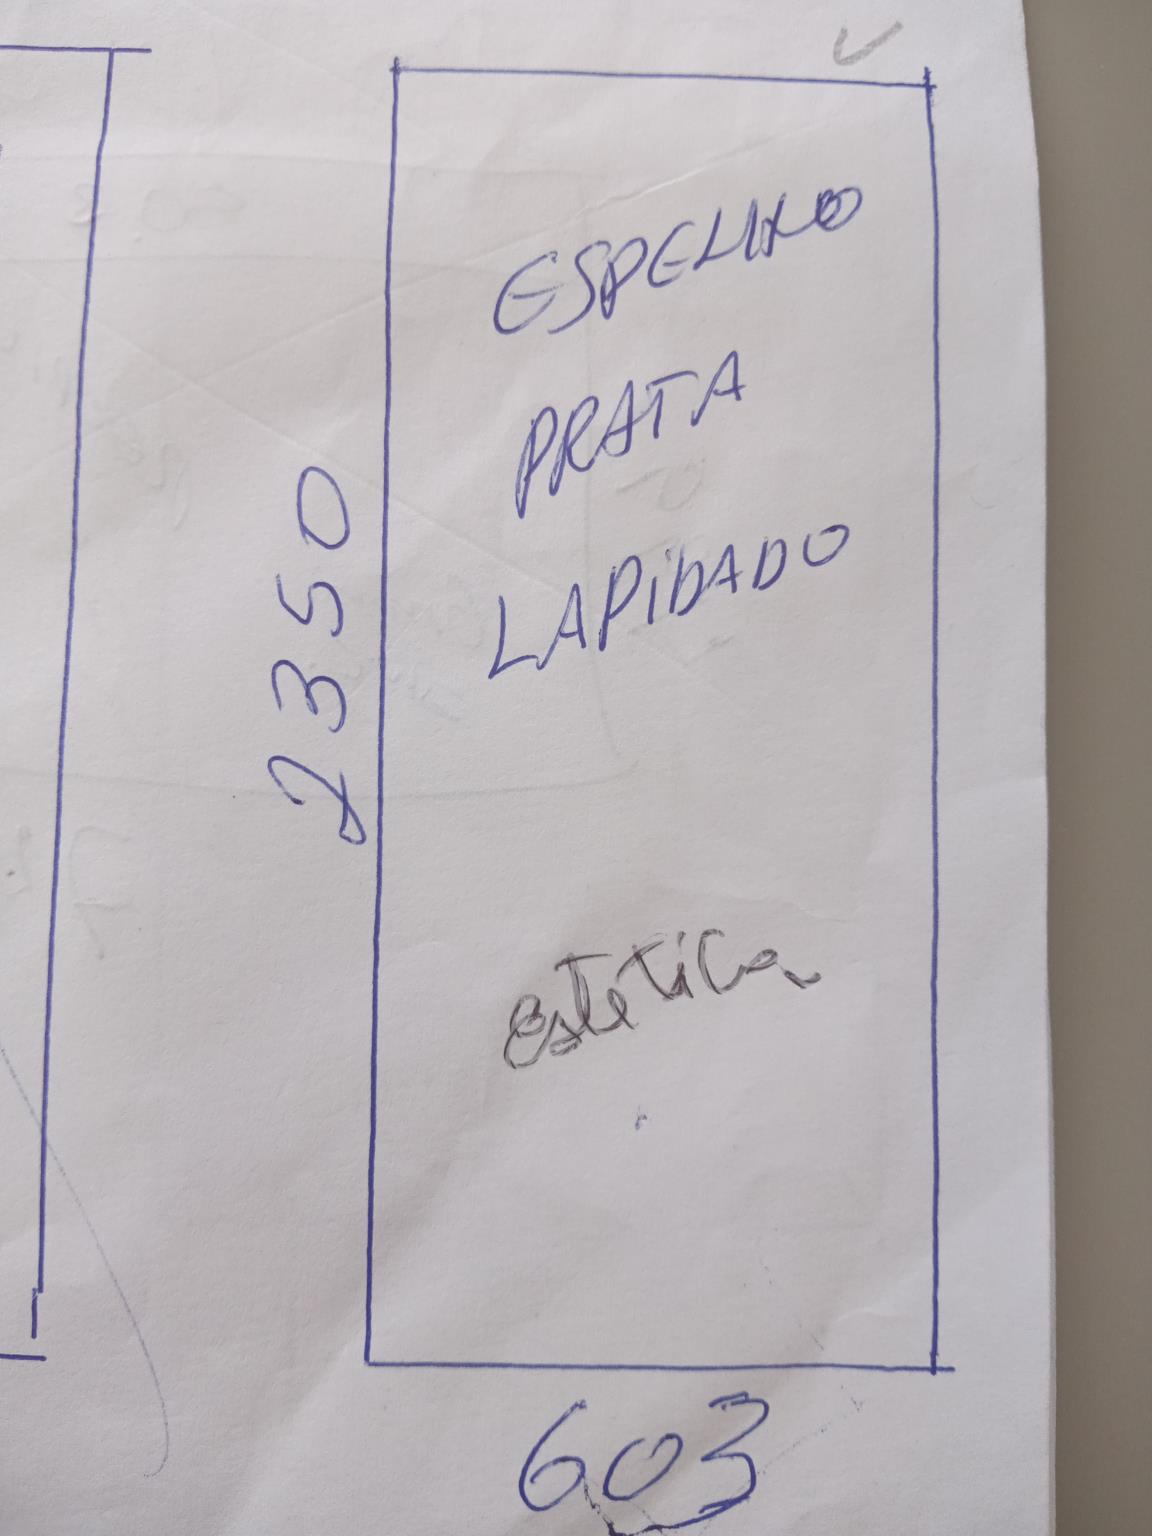 ESPELHO
PRATA
LAPIDADO
2350
estética
603